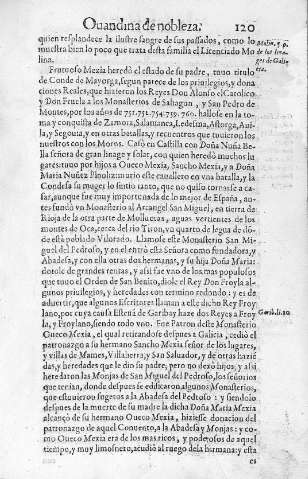 Ouandina de nobleza. 120
quien resplandece la ilustre sangre de sus passados, como lo
muestra bien lo poco que trata desta familia el Licenciado Mo
lina.
Frutuoso Mexia heredò el estado de su padre, tuuo titulo
de Conde de Mayorga, segun parece de los priuilegios, y dona
ciones Reales, que hizieron los Reyes Don Alonso el Catolico,
y Don Fruela a los Monasterios de Sahagun, y San Pedro de
Montes, por los años de 751.752.754.759.760. hallose en la to
ma y conquista de Zamora, Salamanca, Ledesma, Astorga, Aui
la, y Segouia, y en otras batallas, y recuentros que tuuieron los
nuestros con los Moros. Casò en Castilla con Doña Nuña Be-
lla señora de gran linage y solar, con quien heredò muchos lu
gares: tuuo por hijos a Oueco Mexia, Sancho Mexia, y a Doña
Maria Nuñez
murio este cauallero en vna batalla, y la
Condesa su muger lo sintio tanto, que no quiso tornarse a ca-
sar, aunque fue muy importunada de lo mejor de España, an-
tes fundò vn Monasterio al Arcangel San Miguel, en tierra de
Rioja de la otra parte de aguas vertientes de los
montes de Oca, cerca del rio Tiron, vn quarto de legua de dō-
de està poblado Vilorado. Llamose este Monasterio San Mi-
guel del Pedroso, y en el entrò esta Señora como fundadora, y
Abadesa, y con ella otras dos hermanas, y su hija Doña Maria:
dotole de grandes rentas, y assi fue vno de los mas populosos
que tuuo el Orden de San Benito, diole el Rey Don Froyla al-
gunos priuilegios, y heredades con termino redondo: y es de
aduertir, que algunos Escritores llaman a este dicho Rey Froy
lano, por cuya causa Esteuā de Garibay haze dos Reyes a Froy
la, y Froylano, siendo todo vno. Fue Patron deste Monasterio
Oueco Mexia, el qual retirandose despues a Galicia, cediò el
patronazgo a su hermano Sancho Mexia señor de los lugares,
y villas de Mames, Villaherra, y San Saluador, y de otras hazié
das, y heredades que le dio su padre, pero no dexò hijos, y assi
heredaron las Monjas de San Miguel del Pedroso, los señorios
que tenian, donde despues se edificaron algunos Monasterios,
que estuuieron sugetos a la Abadesa del Pedroso: y siendolo
despues de la muerte de su madre la dicha Doña Maria Mexia
alcançò de su hermano Oueco Mexia, hiziesse donacion del
patronazgo de aquel Conuento, a la Abadesa y Monjas: y co-
mo Oueco Mexia era de los mas ricos, y poderosos de aquel
tiempo, y muy limosnero, acudiò al ruego de la hermana: y esta